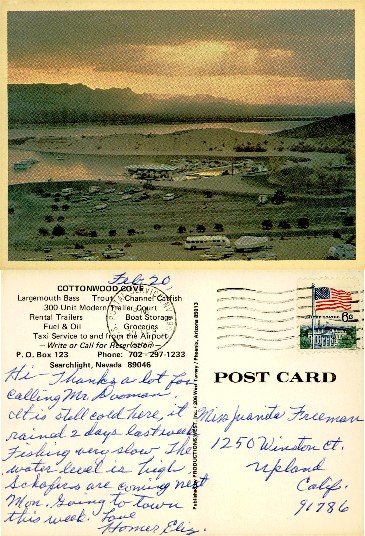 COTTONWOOD COVE
Feb 20
Largemouth Bass Trout Channel Catfish
300 Unit Modern Trailer Court
Rental Trailers Boat Storage
Fuel & Oil Groceries
Taxi Service to and from the Airport
— Write or Call for Reservation —
P. O. Box 123 Phone: 702 - 297-1233
Searchlight, Nevada 89046
Hi - Thanks a lot for
calling Mr. Dooman.
It is still cold here, it
rained 2 days last week
Fishing very slow The
water level is high
Schafers are coming next
Mon. Going to town
this week. Love
Homer Eliz.
Phoenix, Arizona 85013
6c
POST CARD
Miss Juanita Freeman
1250 Winston Ct.
Upland
Calif.
91786